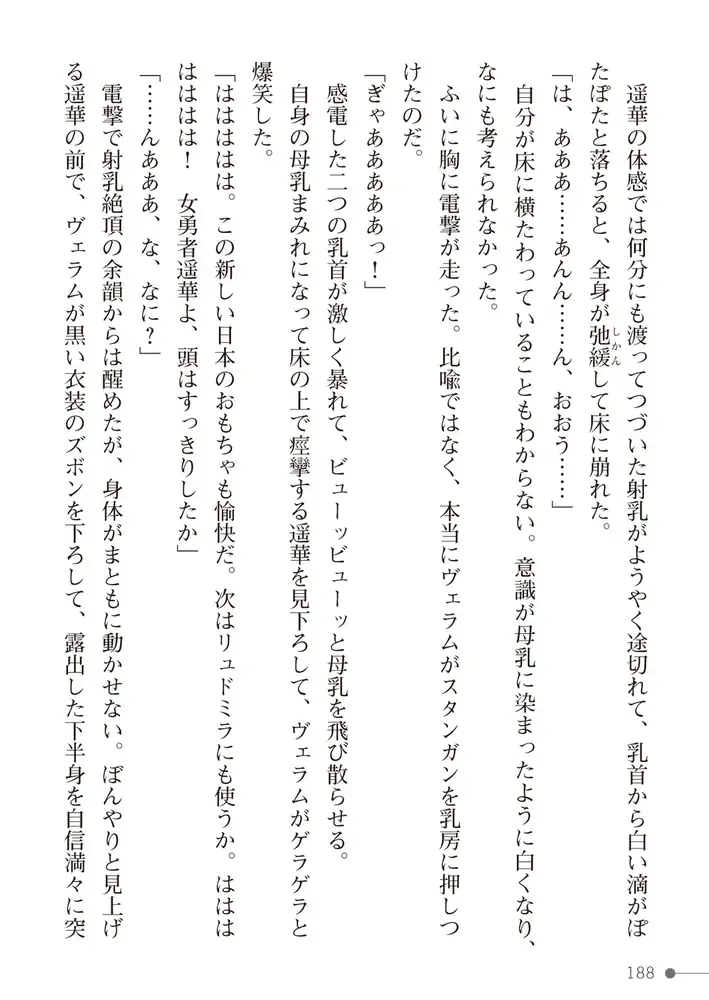 遥華の体感では何分にも渡ってつづいた射乳がようやく途切れて、乳首から白い滴がぽ
たぽたと落ちると、全身が弛緩して床に崩れた。
しかん
「は、あああ……あんん……ん、おおう……」
　自分が床に横たわっていることもわからない。意識が母乳に染まったように白くなり、
なにも考えられなかった。
　ふいに胸に電撃が走った。比喩ではなく、本当にヴェラムがスタンガンを乳房に押しつ
けたのだ。
「ぎゃあああああっ！」
　感電した二つの乳首が激しく暴れて、ビューッビューッと母乳を飛び散らせる。
　自身の母乳まみれになって床の上で痙攣する遥華を見下ろして、ヴェラムがゲラゲラと
爆笑した。
「ははははは。この新しい日本のおもちゃも愉快だ。次はリュドミラにも使うか。ははは
はははは！　女勇者遥華よ、頭はすっきりしたか」
「……んあああ、な、なに？」
　電撃で射乳絶頂の余韻からは醒めたが、身体がまともに動かせない。ぼんやりと見上げ
る遥華の前で、ヴェラムが黒い衣装のズボンを下ろして、露出した下半身を自信満々に突
188